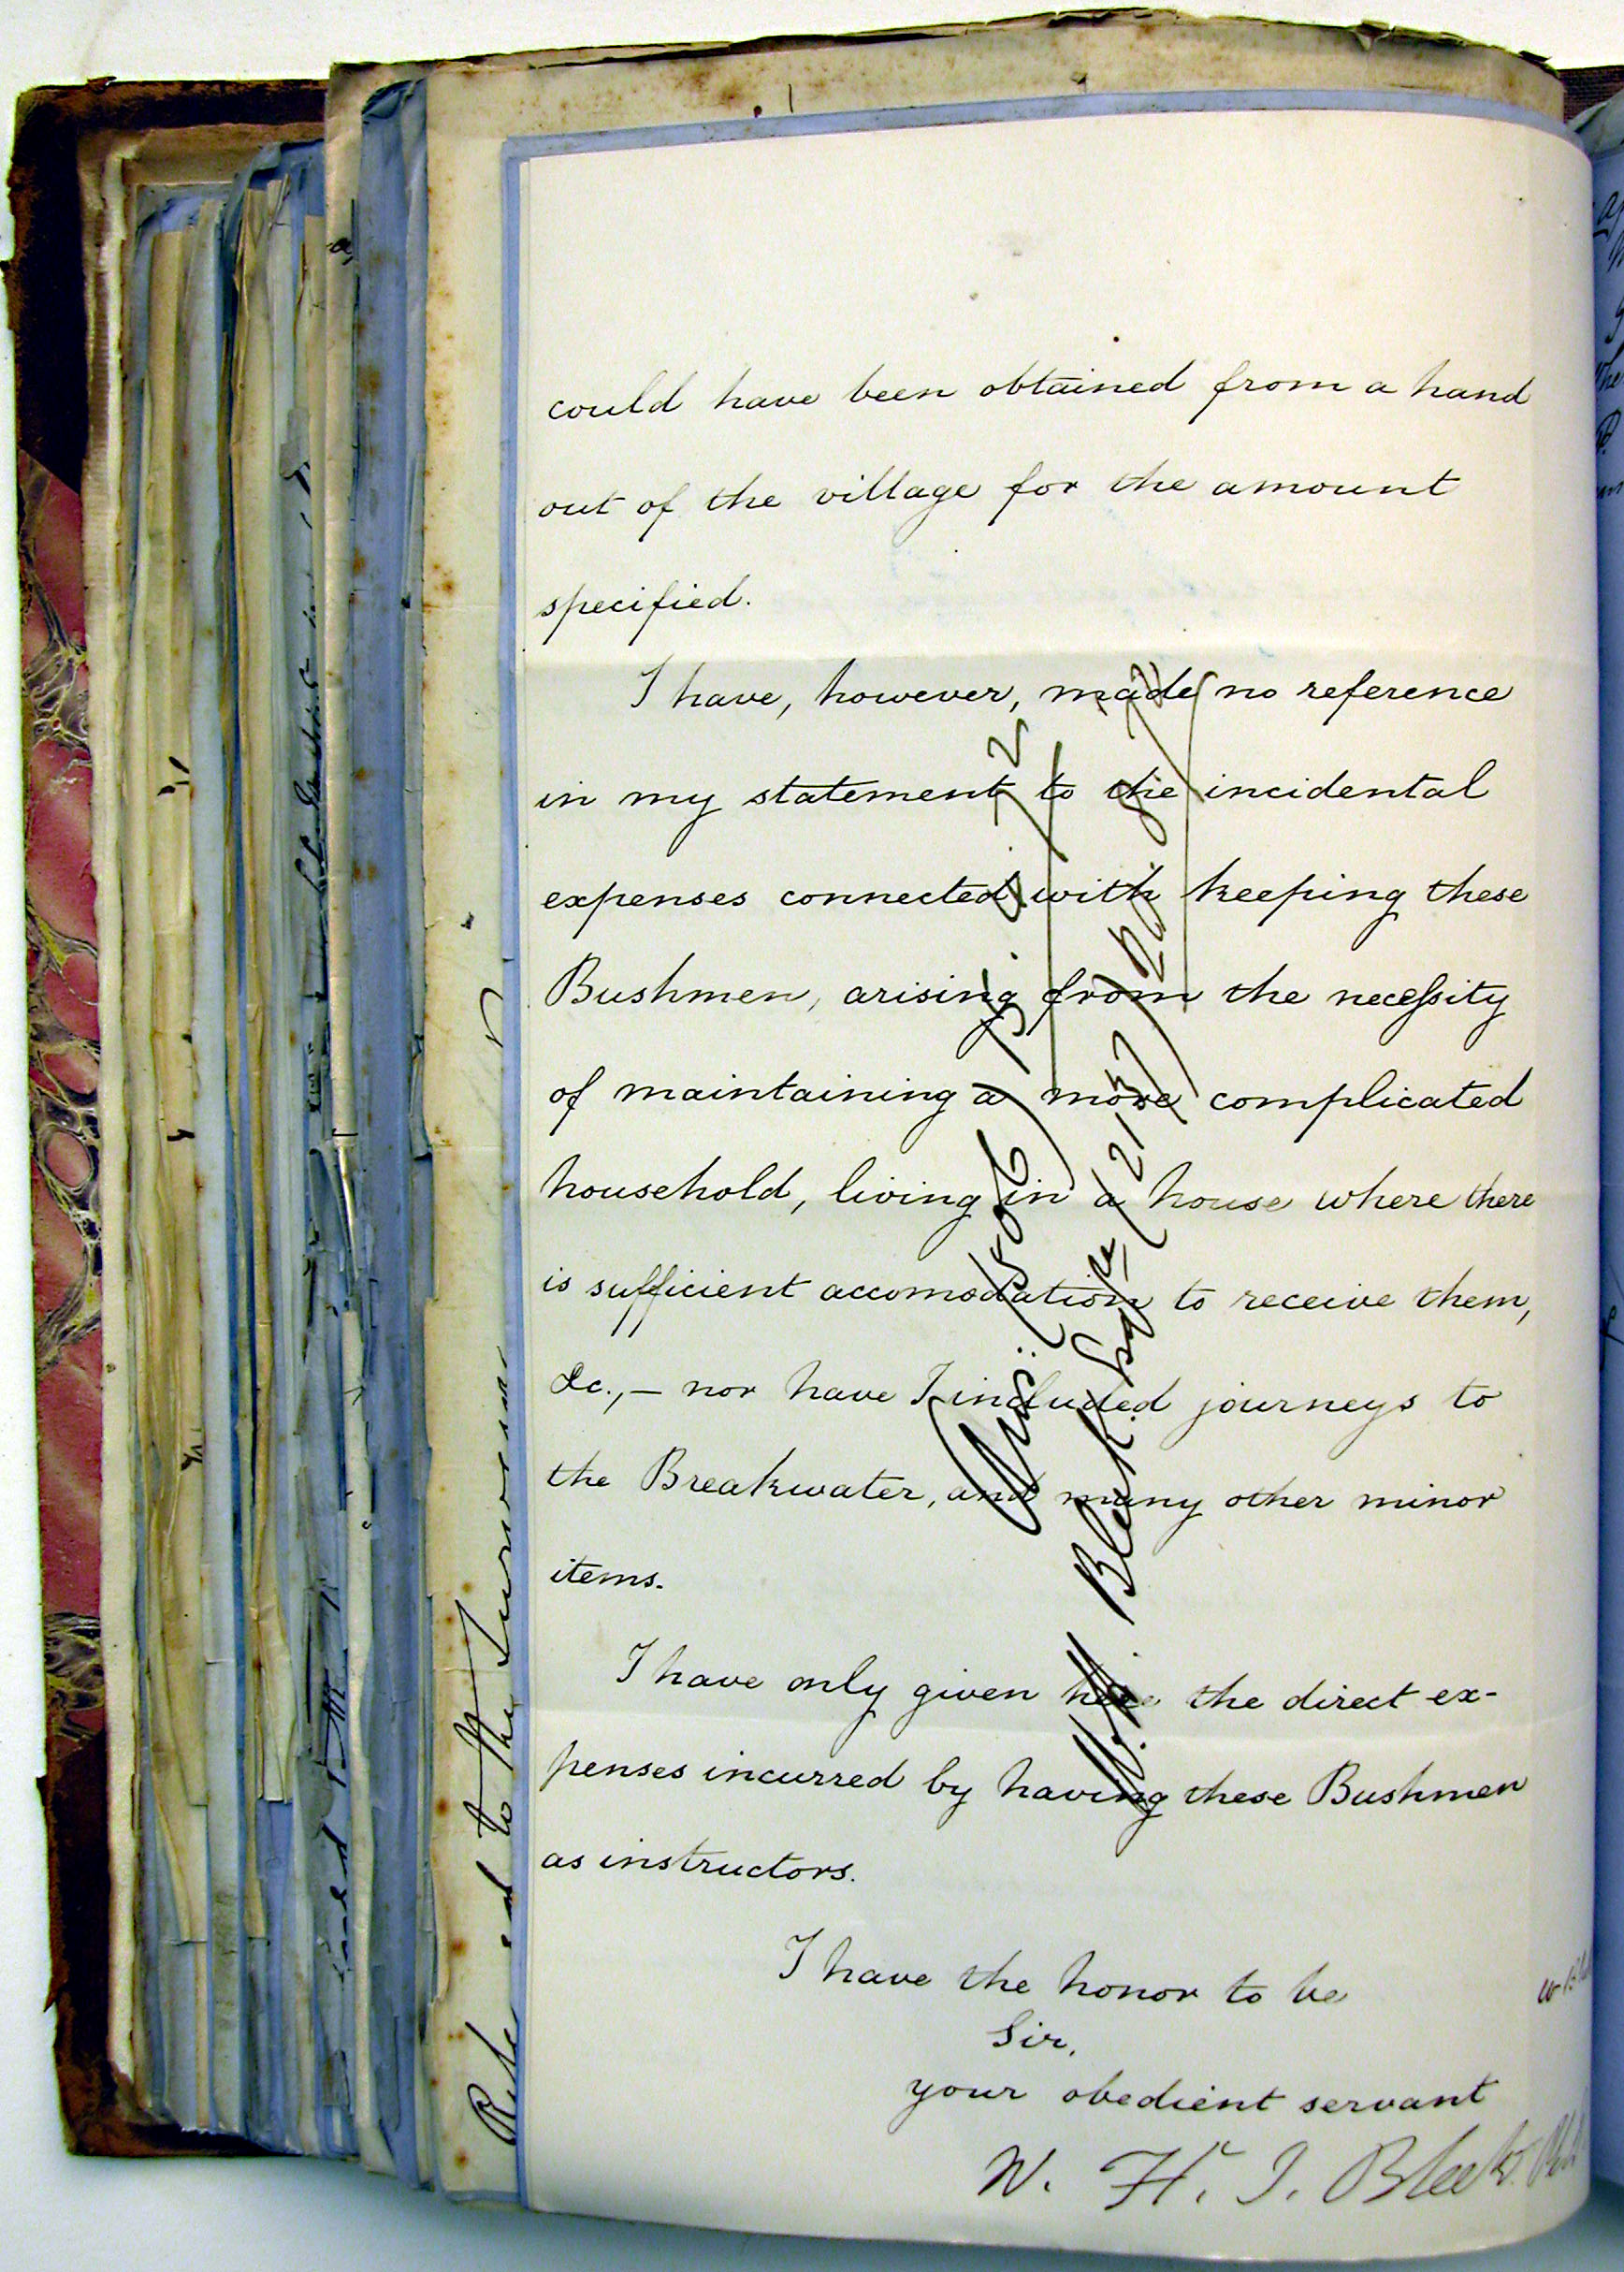 could have been obtained from a hand
out of the village for the amount
specified.
I have, however, made no reference
in my statement to the incidental
expenses connected with keeping these
Bushmen, arising from the necessity
of maintaining a more complicated
household, living in a house where there
is sufficient accomodation to receive them,
&c., — nor have I included journeys to
the Breakwater, and many other minor
items.
I have only given here the direct ex-
penses incurred by having these Bushmen
as instructors.
I have the honor to be
Sir,
your obedient servant
W. H. I. Bleek.
to the
Bleek